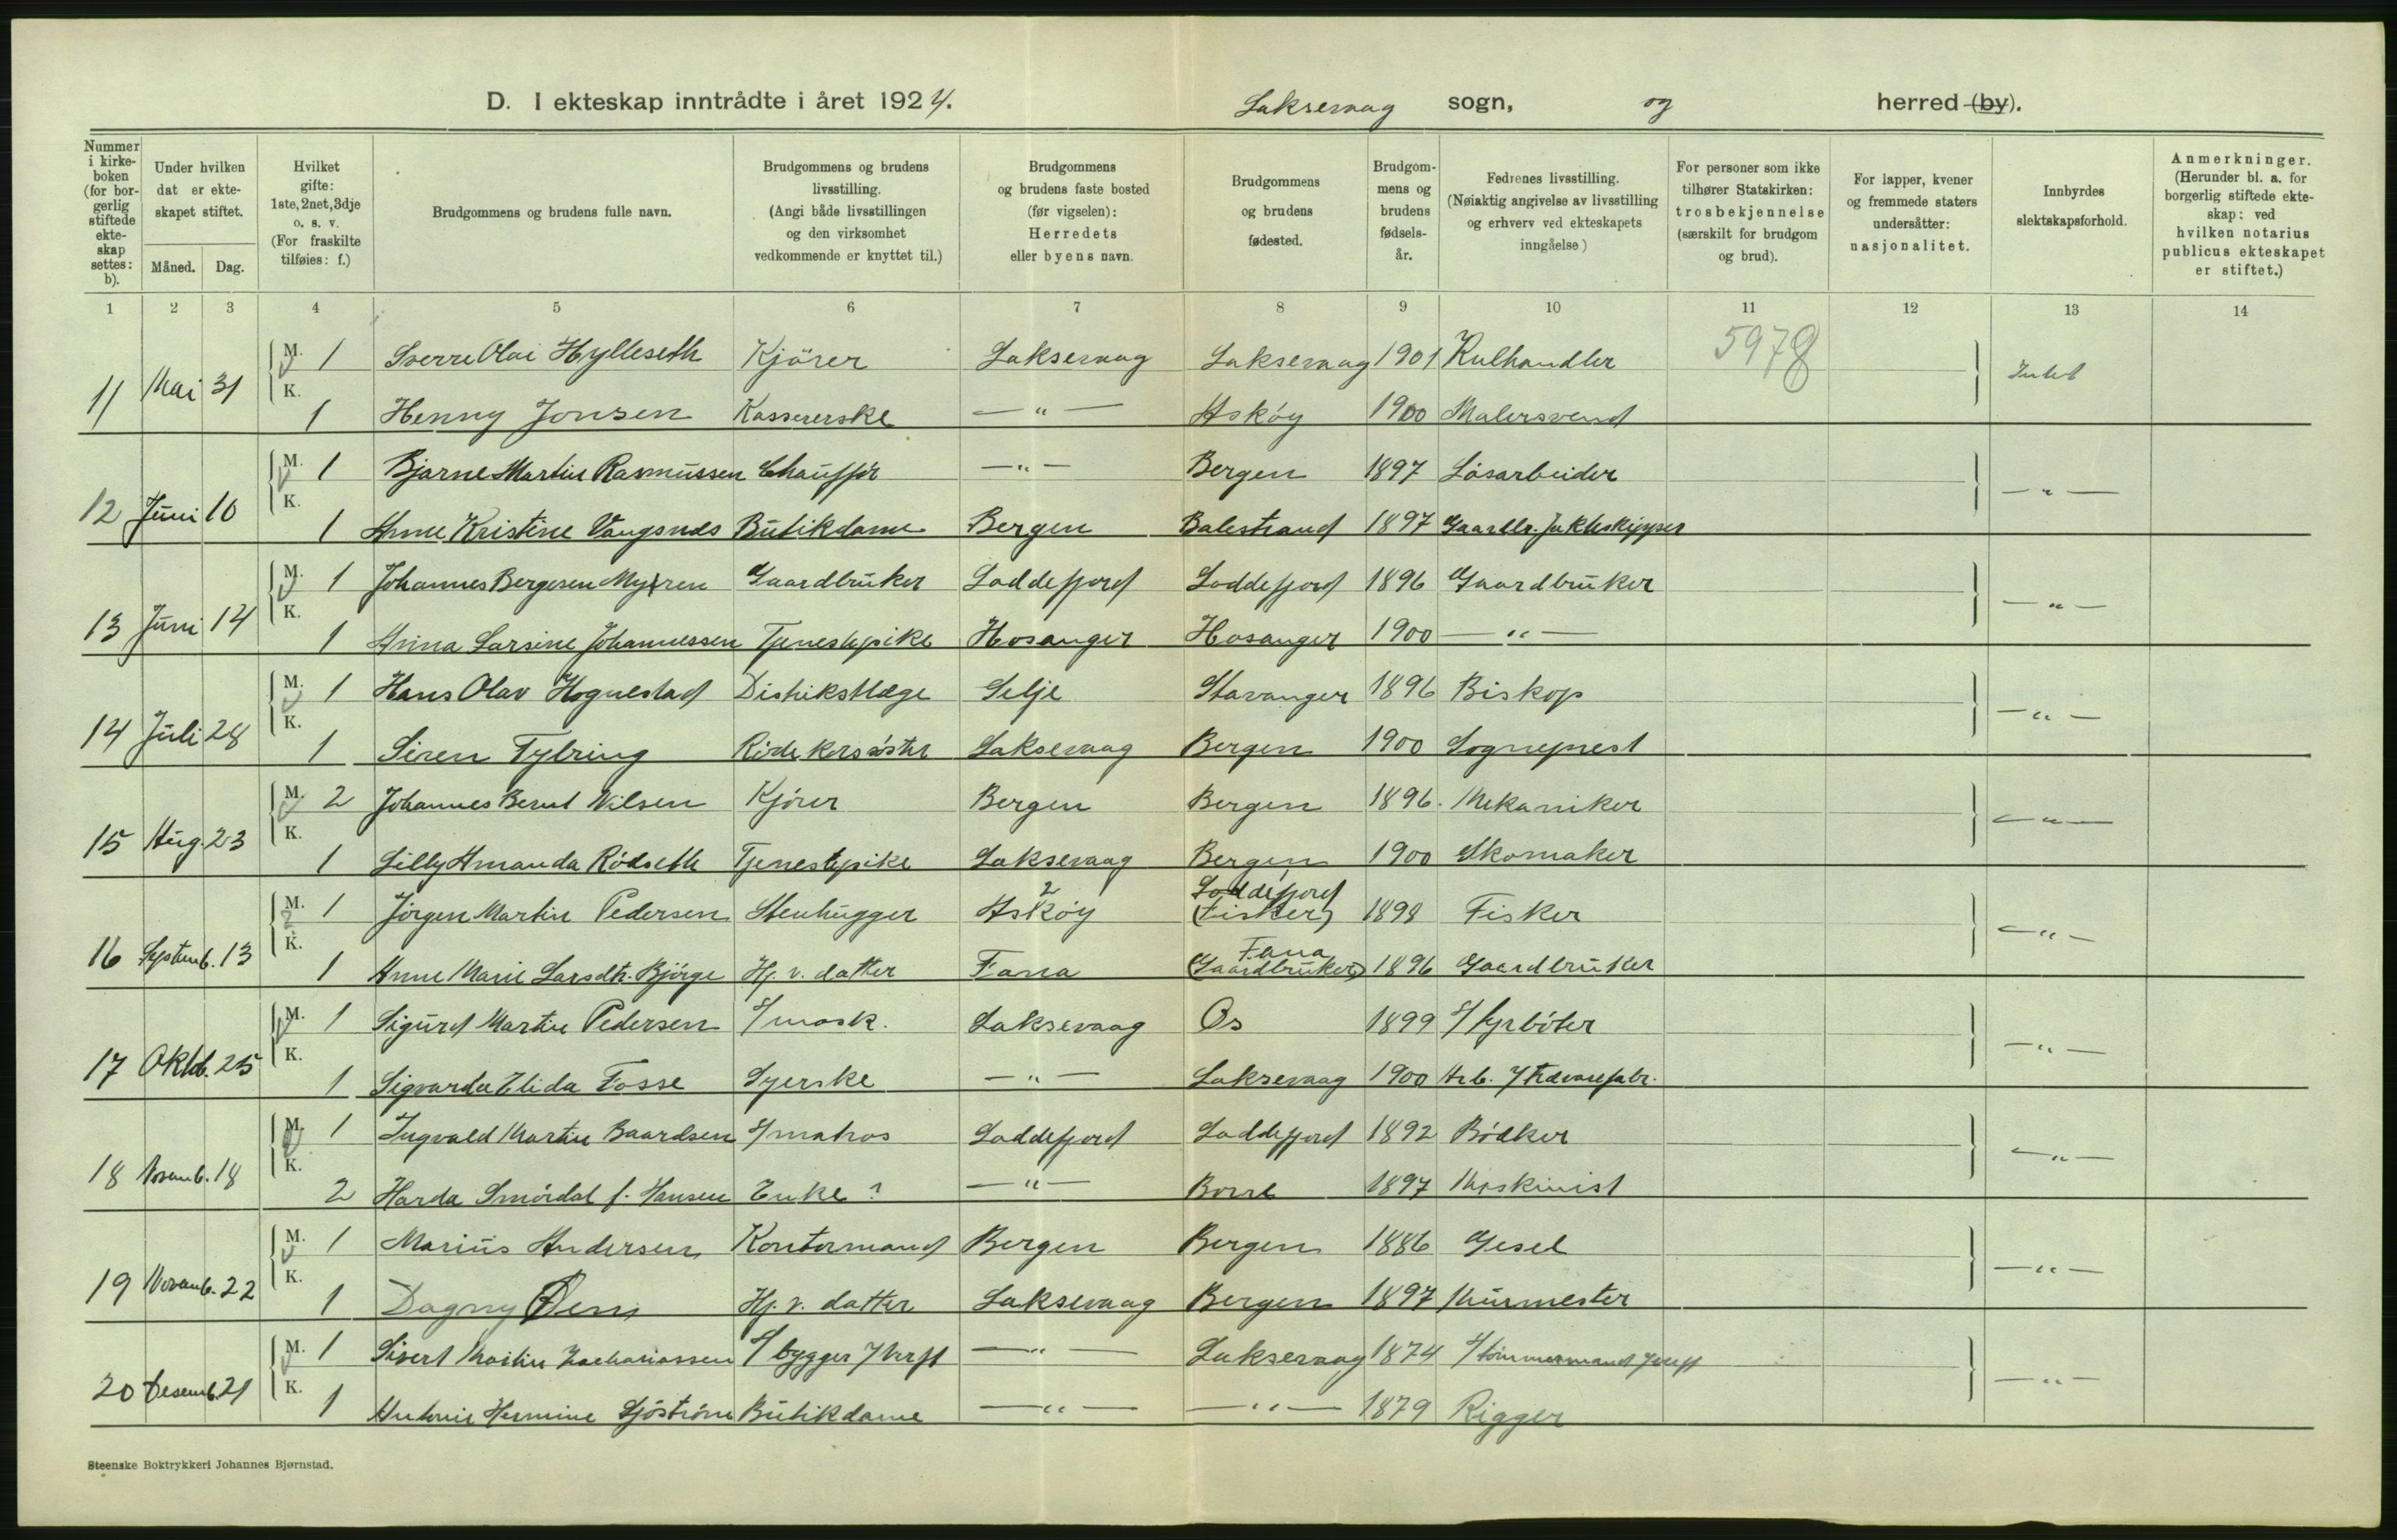 D. I ekteskap inntrådte i året 1924. Laksevaag sogn, og herred (by).
Nummer i kirkeboken (for borgerlig stiftede ekteskap settes: b).
Under hvilken dat er ekteskapet stiftet.
Måned. Dag.
Hvilket gifte: 1ste, 2net, 3dje o. s. v. (For fraskilte tilføies: f.)
Brudgommens og brudens fulle navn.
Brudgommens og brudens livsstilling. (Angi både livsstillingen og den virksomhet vedkommende er knyttet til.)
Brudgommens og brudens faste bosted (før vigselen): Herredets eller byens navn.
Brudgommens og brudens fødested.
Brudgommens og brudens fødselsår.
Fedrenes livsstilling. (Nøiaktig angivelse av livsstilling og erhverv ved ekteskapets inngåelse)
For personer som ikke tilhører Statskirken: trosbekjennelse (særskilt for brudgom og brud).
For lapper, kvener og fremmede staters undersåtter: nasjonalitet.
Innbyrdes slektskapsforhold.
Anmerkninger. (Herunder bl. a. for borgerlig stiftede ekteskap: ved hvilken notarius publicus ekteskapet er stiftet.)
1 2 3 4 5 6 7 8 9 10 11 12 13 14
M. 1 Sverre Olai Hylleseth Kjörer Laksevaag Laksevaag 1901 Kulhandler 5978
11 Mai 31 Intet
K. 1 Henny Jonsen Kassererske — " — Askøy 1900 Malersvend
M. 1 Bjarne Martin Rasmussen Chauffør — " — Bergen 1897 Løsarbeider
12 Juni 10 — " —
K. 1 Anne Kristine Vangsnes Butikdame Bergen Balestrand 1897 Gaardbr. Jakteskipper
M. 1 Johannes Bergesen Myren Gaardbruker Loddefjord Loddefjord 1896 Gaardbruker
13 Juni 14 — " —
K. 1 Anna Larsine Johannessen Tjenestepike Hosanger Hosanger 1900 — " —
M. 1 Hans Olav Hognestad Distriktslæge Selje Stavanger 1896 Biskop
14 Juli 28 — " —
K. 1 Siren Tybring Röde korssöster Laksevaag Bergen 1900 Sogneprest
M. 2 Johannes Bernt Nilsen Kjörer Bergen Bergen 1896. Mekaniker
15 Aug. 23 — " —
K. 1 Lilly Amanda Rödseth Tjenestepike Laksevaag Bergen 1900 Skomaker
M. 1 Jörgen Martin Pedersen Stenhugger Askøy Loddefjord (Fisker) 1898 Fisker
16 Septemb. 13 — " —
K. 1 Anne Marie Larsdtr. Björge Hj. v. datter Fana Fana (Gaardbruker) 1896 Gaardbruker
M. 1 Sigurd Martin Pedersen S/mask. Laksevaag Os 1899 S/fyrböter
17 Oktb. 25 — " —
K. 1 Sigvarda Elida Fosse Syerske — " — Laksevaag 1900 Arb. / Trævarefabr.
M. 1 Ingvald Martin Baardsen S/matros Loddefjord Loddefjord 1892 Bödker
18 Novemb. 18 — " —
K. 2 Harda Smördal f. Hansen Enke ? — " — Borre 1897 Maskinist
M. 1 Marius Andersen Kontormand Bergen Bergen 1886 Gesel
19 Novemb. 22 — " —
K. 1 Dagny Øen Hj. v. datter Laksevaag Bergen 1897 Murmester
M. 1 Sivert Martin Zachariassen S/bygger / Verft — " — Laksevaag 1874 S/tømmermand / verft
20 Desemb. 21 — " —
K. 1 Antonie Hermine Sjöström Butikdame — " — — " — 1879 Rigger
Steenske Boktrykkeri Johannes Bjørnstad.